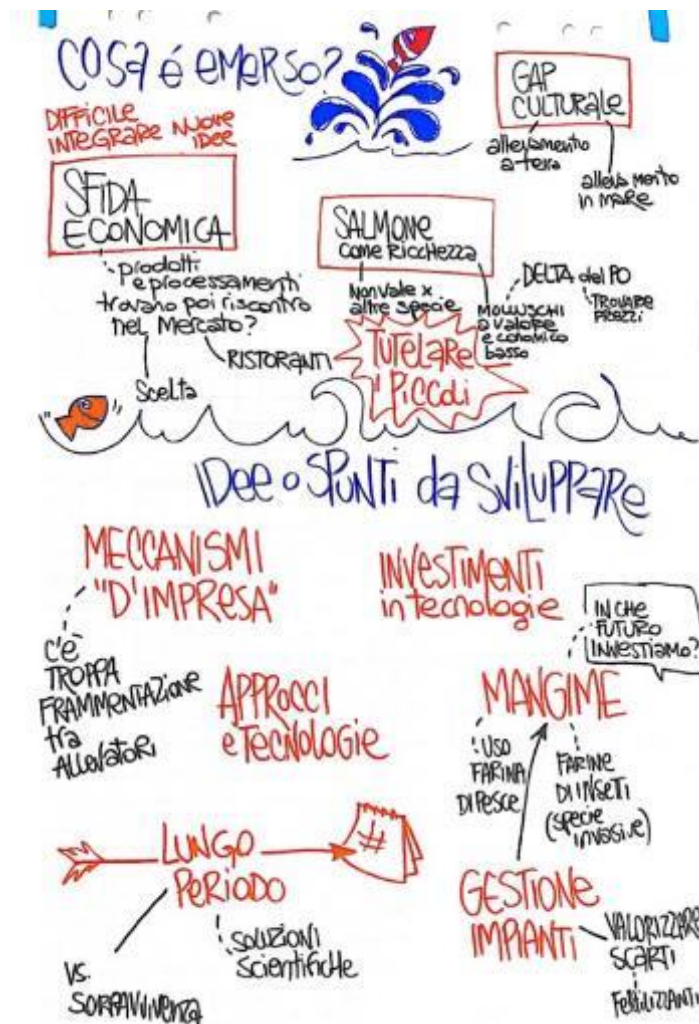 COSA é EMERSO?
DIFFICILE
INTEGRARE NUOVE
IDEE
GAP
CULTURALE
allevamento
a terra
allevamento
in mare
SFIDA
ECONOMICA
prodotti
e processamenti
trovano poi riscontro
nel Mercato?
Scelta
RISTORANTI
SALMONE
COME RICCHEZZA
Non vale x
altre specie
MOLLUSCHI
a valore
economico
basso
DELTA del PO
TROVARE
PREZZI
TUTELARE
i PICCOLI
IDee o SPUNTI da SVILUPPARE
MECCANISMI
"D'IMPRESA"
c'è
TROPPA
FRAMMENTAZIONE
tra
ALLEVATORI
INVESTIMENTI
in tecnologie
IN CHE
FUTURO
INVESTIAMO?
APPROCCI
e TECNOLOGIE
MANGIME
USO
FARINA
DI PESCE
FARINE
DI INSETI
(specie
invasive)
LUNGO
PERIODO
#
VS.
SOPRAVVIVENZA
SOLUZIONI
scientifiche
GESTIONE
IMPIANTI
VALORIZZARE
SCARTI
FERTILIZZANTI